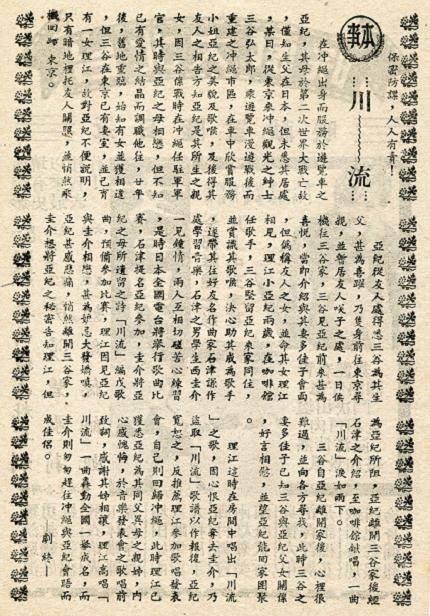 保密防諜 人人有責！
本事
川——流
在沖繩出身而服務於遊覽車之
亞紀，其母於第二次世界大戰亡故
，僅知生父在日本，但未悉其居處
，某日，從東京來沖繩觀光之紳士
三谷弘太郎，乘遊覽車漫遊戰後而
重建之沖繩市區，在車中欣賞服務
小姐亞紀之美貌及歌喉，及後得其
友人之相告方知亞紀是其所生之親
女，因三谷係戰時在沖繩任駐軍軍
官，其時與亞紀之母相戀，但不知
已有愛情之結晶而調職他往，廿年
後，舊地重臨，始知有女並獲相逢
，但三谷在東京已有妻室，並已育
有一女理江，故對亞紀不便說明，
只有暗地裡托友人關照，並悄然乘
機回歸東京。
亞紀從友人處得悉三谷為其生
父，甚為喜躍，乃隻身前往東京尋
親，並暫居友人咲子之處，一日偕
機往三谷家，三谷見亞紀前來甚為
喜悅，當即介紹與其妻多佳子會面
，但偽稱友人之女，並命其女理江
相見，理江小亞紀兩歲，在咖啡館
任歌手，三谷堅留亞紀在家同住，
並賞識其歌喉，決心助其成為歌手
，遂帶其往好友名作曲家石津謙作
處學習音樂，石津之男學生西圭介
一見鍾情，兩人互相切磋苦心練習
，是時日本全國電台將舉行歌曲比
賽，石津提名亞紀參加，圭介將亞
紀之母所遺留之詩「川流」編成歌
曲，預備參加比賽，理江因見亞紀
與圭介相戀，甚為妒忌大發嬌嗔，
亞紀甚感悲痛，悄然離開三谷家，
圭介想將亞紀之秘密告知理江，但
為亞紀所阻，亞紀離開三谷家後經
石津之介紹，至咖啡館獻唱，一曲
「川流」淚如雨下。
三谷自亞紀離開家後，心裡很
難過，並向各方尋找，此時三谷之
妻多佳子已知三谷與亞紀父女關係
，好言相慰，並望亞紀能回家團聚
。
理江這時在房間中唱出「川流
」之歌，因心恨亞紀奪去圭介，乃
盜取「川流」歌譜以作報復，亞紀
寬恕之，反推薦理江參加歌唱發表
會，自己則回歸沖繩，此時理江已
獲悉亞紀為其同父異母之親姊，內
心感愧，於音樂發表會之歌唱前
致詞，感謝其姊相讓，理江高唱「
川流」一曲轟動全國一舉成名，而
圭介則匆匆趕往沖繩與亞紀會晤而
成佳侶。 ——劇終——